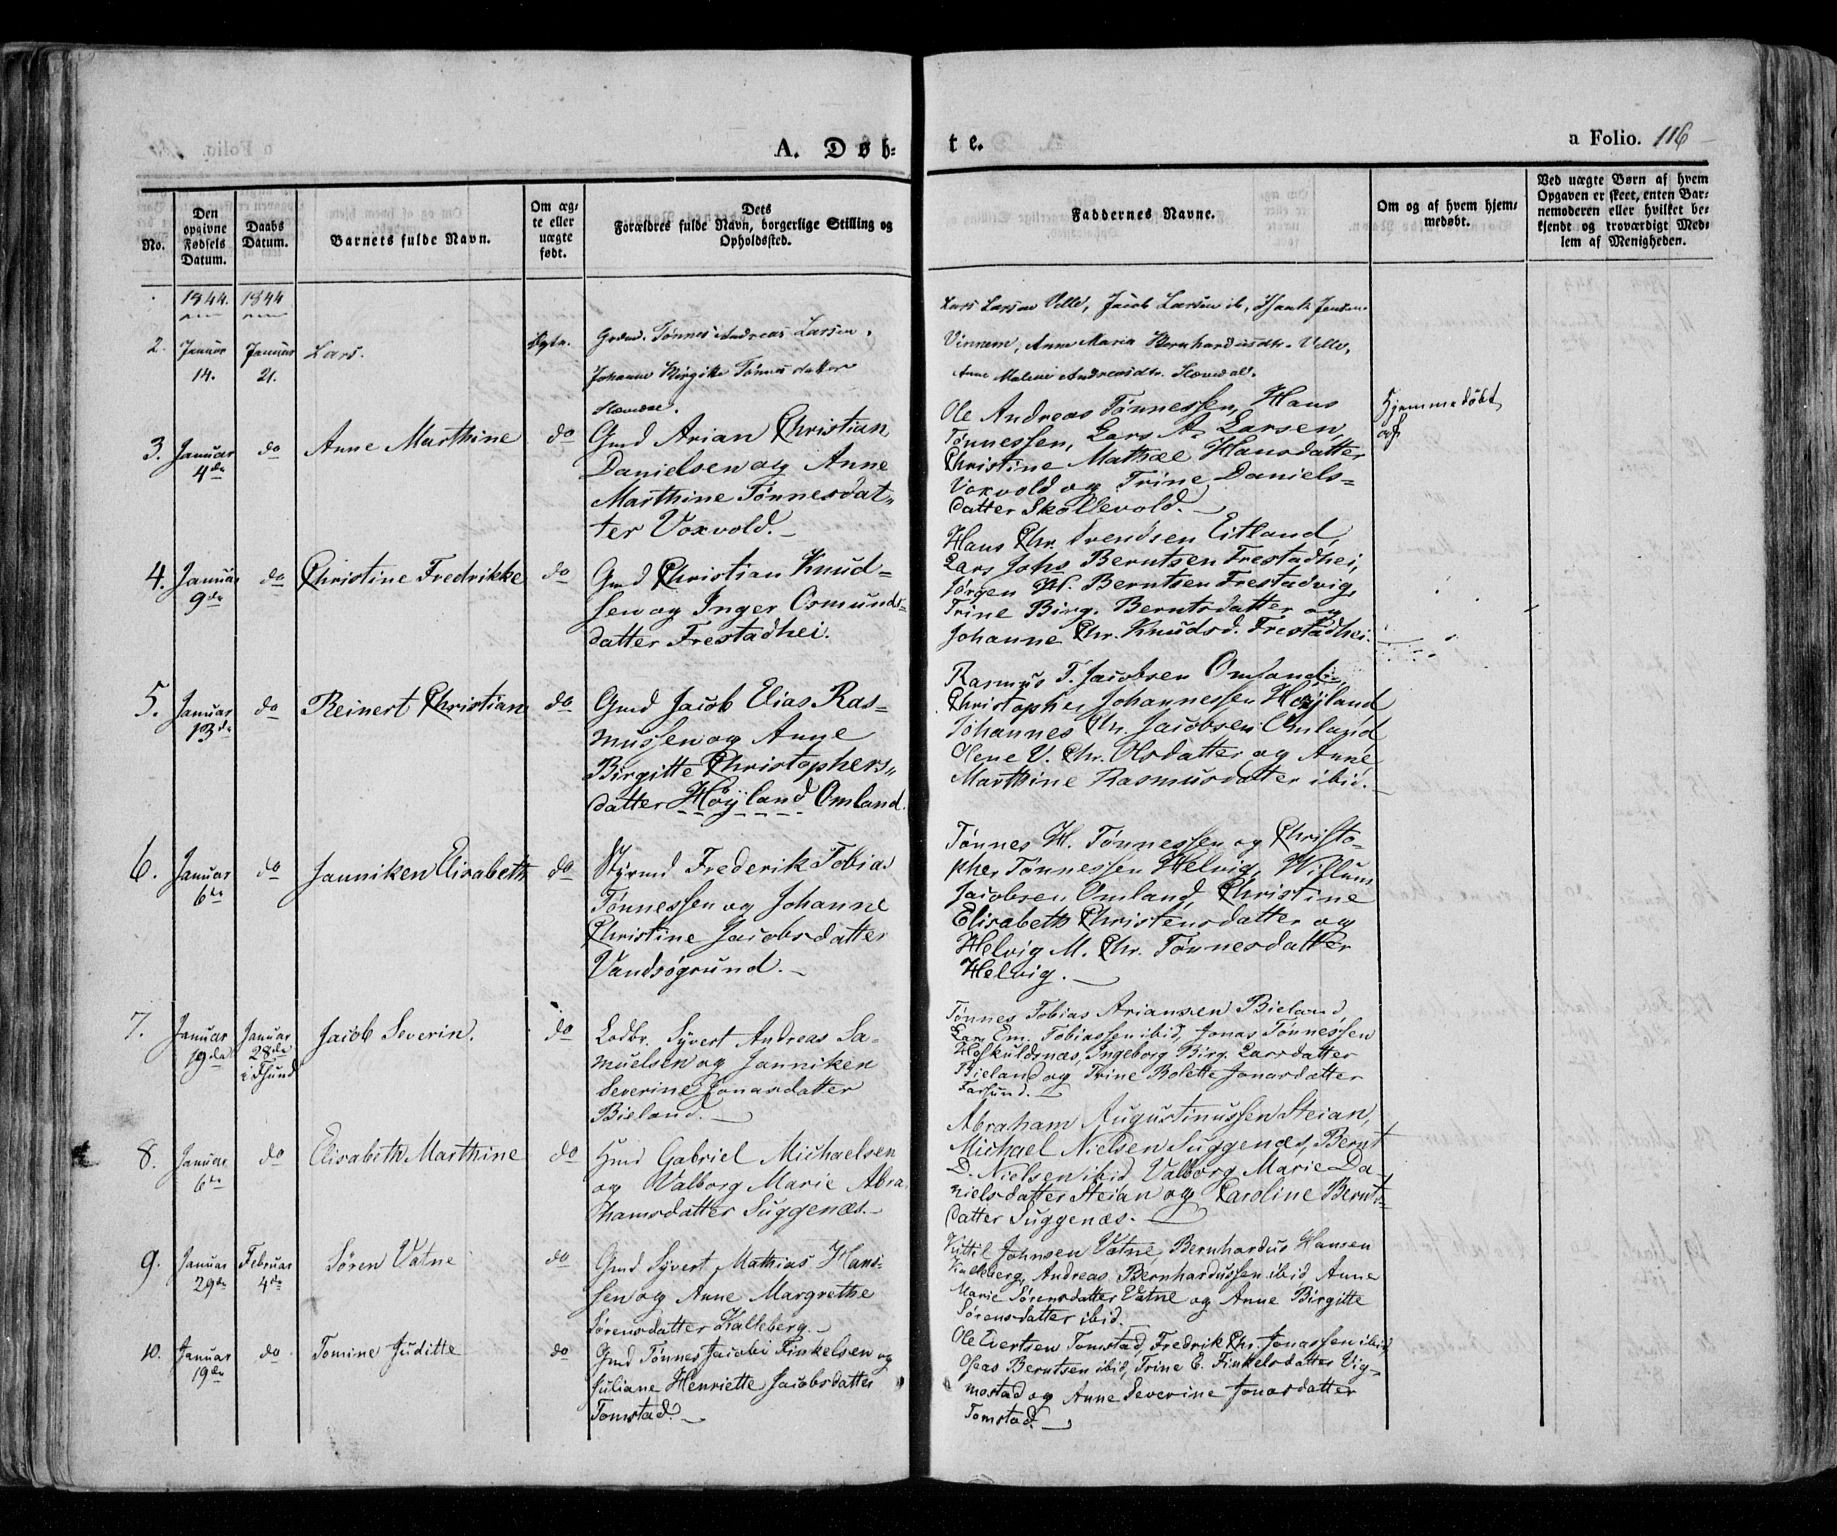 A. Døb-
te.
a Folio. 116
No.
Den opgivne Fødsels Datum.
Daabs Datum.
Barnets fulde Navn.
Om æg-te eller uægte født.
Dets
Forældres fulde Navn, borgerlige Stilling og
Opholdssted.
Faddernes Navne.
Om og af hvem hjem-
medøbt.
Ved uægte Børn af hvem
Opgaven er skeet, enten Bar-
nemoderen eller hvilket be-
kjendt og troværdigt Med-
lem af Menigheden.
1844. 1844
2. Januar 14. Januar 21. Lars. Ægte.
Grdmd. Tønnes Andreas Larsen,
Johanne Birgitte Tønnesdatter
Lars Larsen Velle, Jacob Larsen ib, Isaak Jensen
Vinnem, Anne Maria Bernhardusdtr. Velle,
Anne Malene Andreasdtr.
3. Januar 4de do Anne Marthine do
Gmd Arian Christian
Danielsen og Anne
Marthine Tønnesdat-
ter Voxvold.
Ole Andreas Tønnessen, Hans
Tønnessen, Lars A. Larsen,
Christine Mathæe Hansdatter
Voxvold og Trine Daniels=
datter Skollevold.
Hjemmedøbt
af
4. Januar 9de do Christine Fredrikke do
Gmd Christian Knud=
sen og Inger Osmunds-
datter Frestadhei.
Hans Chr. Svendsen Eitland,
Lars Johs Berntsen Frestadhei,
Jørgen H. Berntsen Frestadvig,
Trine Birg. Berntsdatter og
Johanne Chr. Knudsd. Frestadhei.
5. Januar 13de do Reinert Christian do
Gmd Jacob Elias Ras=
mussen og Anne
Birgitte Christophers-
datter Høyland Omland.
Rasmus T. Jacobsen Omland,
Christopher Johannessen Høyland
Johannes Chr. Jacobsen Omland
Olene V. Chr. Olsdatter og Anne
Marthine Rasmusdatter ibid.
6. Januar 6te do Janniken Elisabeth do
Styrmd Frederik Tobias
Tønnessen og Johanne
Christine Jacobsdatter
Vandsøgrund.
Tønnes H. Tønnessen og Christo-
pher Tønnessen Helvig, Willum
Jacobsen Omland, Christine
Elisabeth Christensdatter og
Helvig M. Chr. Tønnesdatter
Helvig.
7. Januar 19de Januar 28de i Fsund Jacob Severin. do
Lodbr. Syvert Andreas Sa-
muelsen og Janniken
Severine Jonasdatter
Bieland.
Tønnes Tobias Ariansen Bieland,
Lars Em. Tobiassen ibid, Jonas Tønnessen
Høskuldsnæs, Ingeborg Birg. Larsdatter
Bieland og Trine Bolette Jonasdatter
Farsund.
8. Januar 6te do Elisabeth Marthine do
Hmd Gabriel Michaelsen
og Valborg Marie Abra
hamsdatter Suggenæs.
Abraham Augustinussen Steian,
Michael Nielsen Suggenæs, Bernt
D. Nielsen ibid, Valborg Marie Da-
nielsdatter Steian og Caroline Bernts-
datter Suggenæs.
9. Januar 29de Februar 4de Søren Vatne do
Gmd Syvert Mathias Hans=
sen og Anne Margrethe
Sørensdatter Kalleberg.
Kittil Johnsen Vatne, Bernhardus Hansen
Kalleberg, Andreas Bernhardussen ibid, Anne
Marie Sørensdatter Vatne og Anne Birgitte
Sørensdatter ibid.
10. Januar 19de do Tomine Juditte do
Gmd Tønnes Jacobi Finkelsen og
Juliane Henriette Jacobsdatter
Tomstad.
Ole Evertsen Tomstad, Fredrik Chr. Jonassen ibid
Oseas Berntsen ibid, Trine E. Finkelsdatter Vig-
mostad og Anne Severine Jonasdatter
Tomstad.